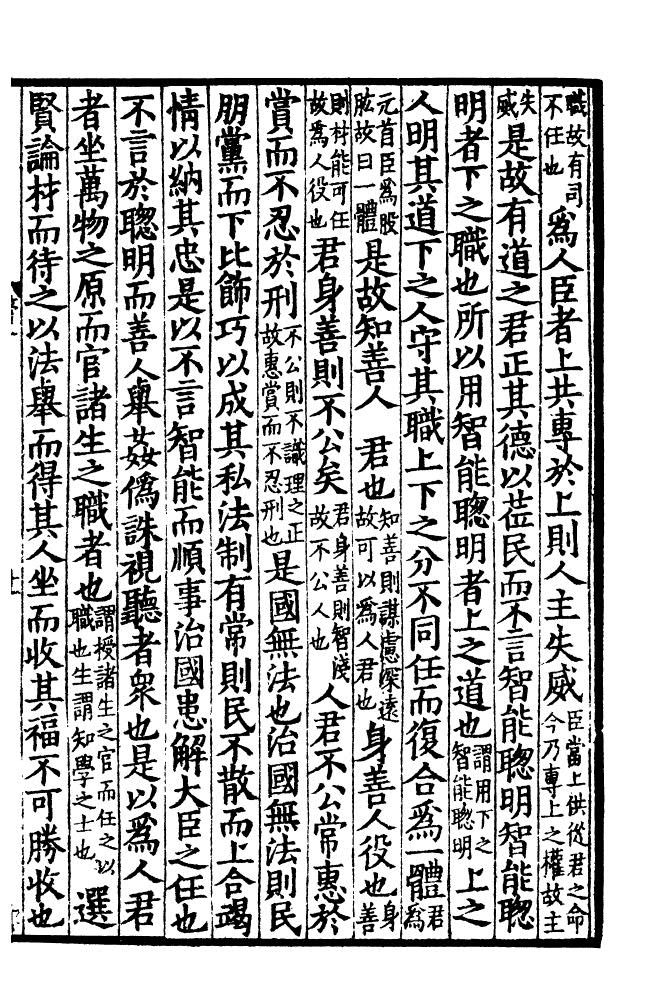 職故有司不任也爲人臣者上共專於上則人主失威臣當上供從君之命今乃專上之權故主
失威是故有道之君正其德以莅民而不言智能聦明智能聦
明者下之職也所以用智能聦明者上之道也謂用下之智能聦明上之
人明其道下之人守其職上下之分不同任而復合爲一體君爲
元首臣爲股肱故曰一體是故知善人君也知善則謀慮深遠故可以爲人君也身善人役也身善
則材能可任故爲人役也君身善則不公矣君身善則智淺故不公人也人君不公常惠於
賞而不忍於刑不公則不識理之正故惠賞而不忍刑也是國無法也治國無法則民
朋黨而下比飾巧以成其私法制有常則民不散而上合竭
情以納其忠是以不言智能而順事治國患解大臣之任也
不言於聦明而善人舉姦偽誅視聽者衆也是以爲人君
者坐萬物之原而官諸生之職者也謂授諸生之官而任之以職也生謂知學之士也選
賢論材而待之以法舉而得其人坐而收其福不可勝收也